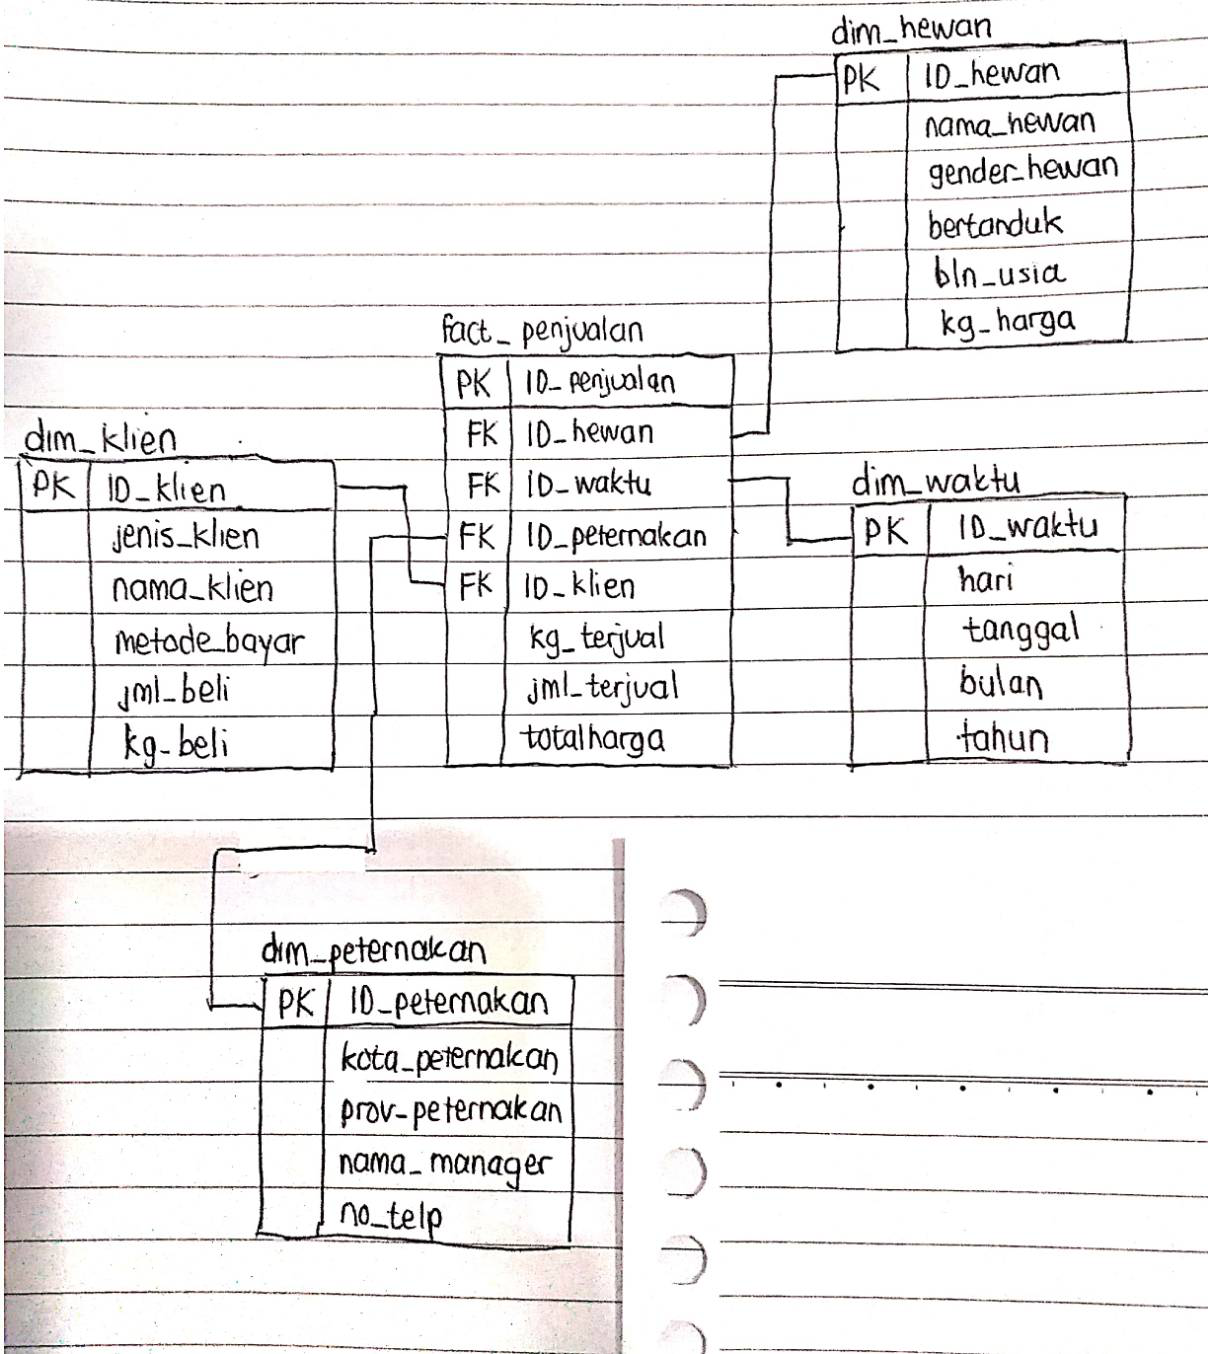 dim_hewan
PK ID_hewan
nama_hewan
gender_hewan
bertanduk
bln_usia
kg_harga
fact_penjualan
PK ID_penjualan
FK ID_hewan
FK ID_waktu
FK ID_peternakan
FK ID_klien
kg_terjual
jml_terjual
totalharga
dim_klien
PK ID_klien
jenis_klien
nama_klien
metode_bayar
jml_beli
kg_beli
dim_waktu
PK ID_waktu
hari
tanggal
bulan
tahun
dim_peternakan
PK ID_peternakan
kota_peternakan
prov_peternakan
nama_manager
no_telp